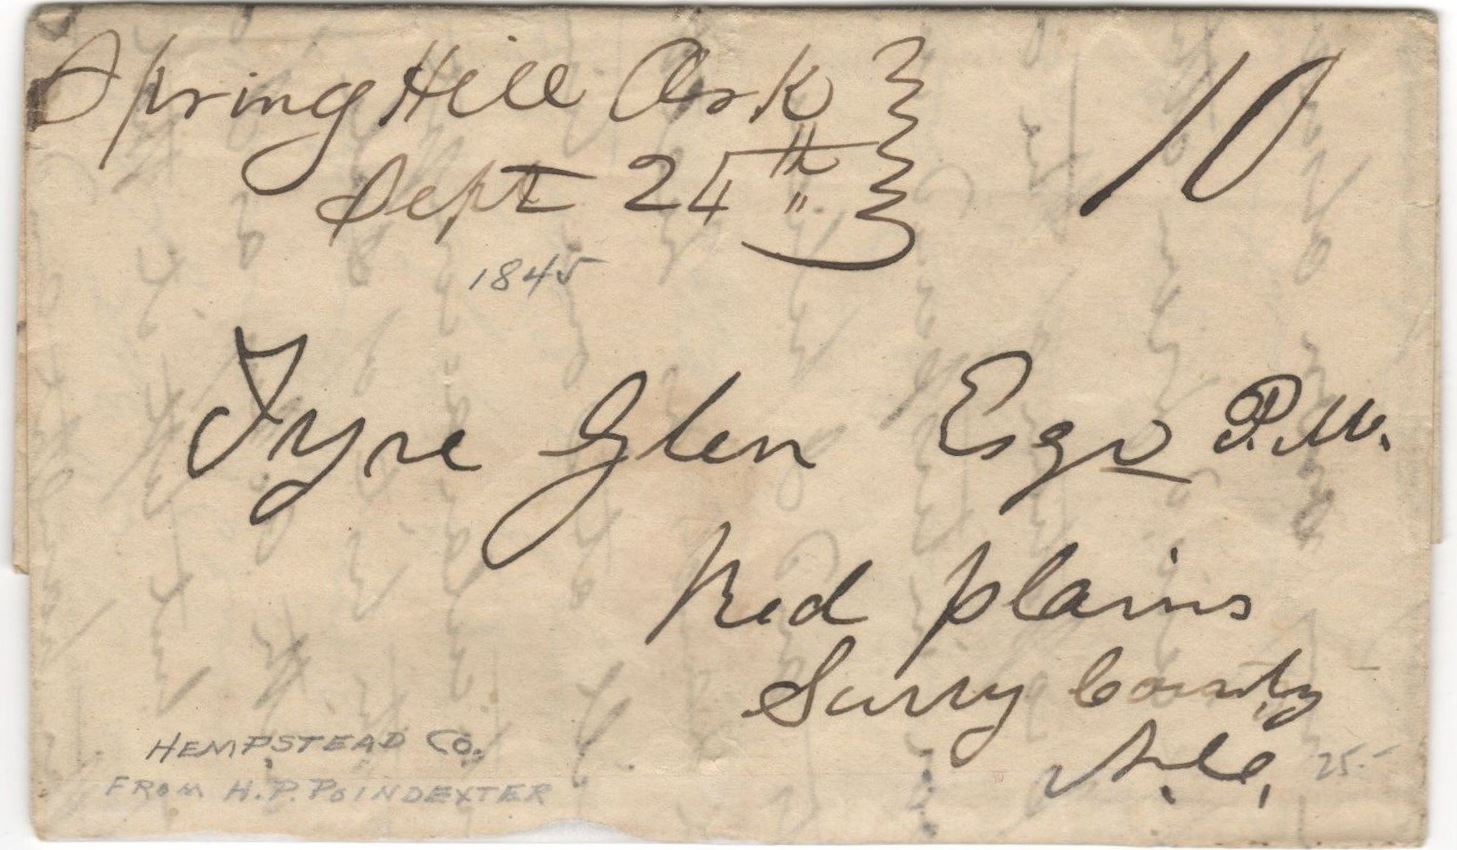 Spring Hill Ark 10
Sept 24th
1845
Tyre Glen Esqr P.M.
Red plains
Surry County
N.C. 25.-
HEMPSTEAD CO.
FROM H.P. POINDEXTER